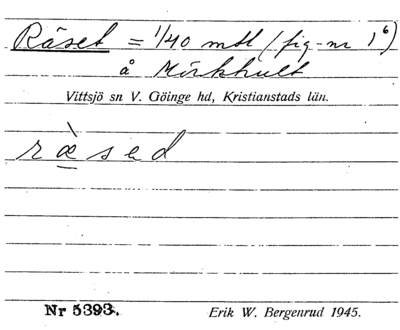 Räset = 1/40 mtl (fig-nr 1⁶)
å Mörkhult
Vittsjö sn V. Göinge hd, Kristianstads län.
ræ̀sed
Nr 5393.
Erik W. Bergenrud 1945.